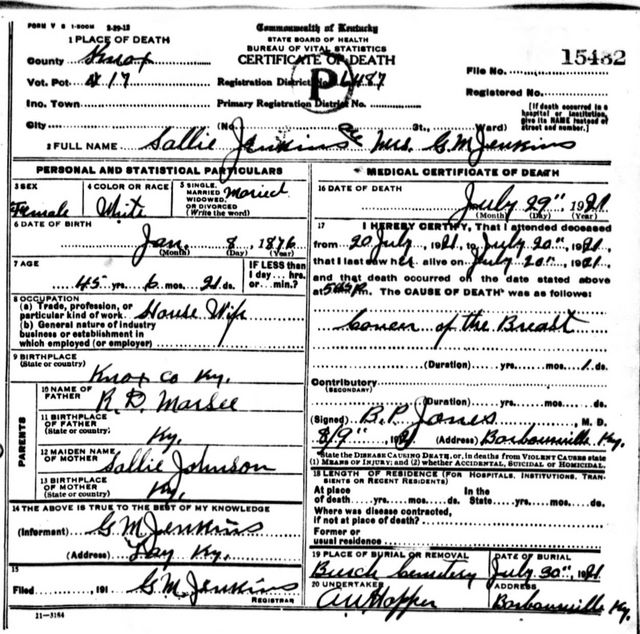 FORM V S 1-500M 2-29-12
Commonwealth of Kentucky
STATE BOARD OF HEALTH
BUREAU OF VITAL STATISTICS
CERTIFICATE OF DEATH
1 PLACE OF DEATH
County Knox
Vot. Pct 4 17
Registration District No. 4487
P
File No. 15482
Registered No.
Inc. Town
Primary Registration District No.
[If death occurred in a hospital or institution, give its NAME instead of street and number.]
City (No. St., Ward)
2 FULL NAME Sallie Jenkins Mrs. G. M. Jenkins
PERSONAL AND STATISTICAL PARTICULARS
3 SEX Female
4 COLOR OR RACE White
5 SINGLE, MARRIED WIDOWED, OR DIVORCED (Write the word) Maried
6 DATE OF BIRTH
Jan. 8, 1876
(Month) (Day) (Year)
7 AGE
45 yrs. 6 mos. 21 ds.
IF LESS than 1 day ... hrs. or ... min.?
8 OCCUPATION
(a) Trade, profession, or particular kind of work House Wife
(b) General nature of industry
business or establishment in
which employed (or employer)
9 BIRTHPLACE
(State or country)
Knox co Ky.
PARENTS
10 NAME OF FATHER R. D. Marsee
11 BIRTHPLACE OF FATHER
(State or country) Ky.
12 MAIDEN NAME OF MOTHER Sallie Johnson
13 BIRTHPLACE OF MOTHER
(State or country) Ky.
14 THE ABOVE IS TRUE TO THE BEST OF MY KNOWLEDGE
(Informant) G M Jenkins
(Address) Lay Ky.
15
Filed , 191 G. M. Jenkins
REGISTRAR
11-3184
MEDICAL CERTIFICATE OF DEATH
16 DATE OF DEATH
July 29" 1921
(Month) (Day) (Year)
17 I HEREBY CERTIFY, That I attended deceased
from 20 July, 1921, to July 20", 1921,
that I last saw her alive on July 20", 1921,
and that death occurred on the date stated above
at m. The CAUSE OF DEATH was as follows:
Cancer of the Breast
(Duration) yrs. mos. 1 ds.
Contributory
(SECONDARY)
(Duration) yrs. mos. ds.
(Signed) B. P. Jones M. D.
8/9", 1921 (Address) Barbourville Ky.
State the DISEASE CAUSING DEATH, or, in deaths from VIOLENT CAUSES state
(1) MEANS OF INJURY; and (2) whether ACCIDENTAL, SUICIDAL or HOMICIDAL.
18 LENGTH OF RESIDENCE (FOR HOSPITALS, INSTITUTIONS, TRANSIENTS OR RECENT RESIDENTS)
At place In the
of death yrs. mos. ds. State yrs. mos. ds.
Where was disease contracted,
if not at place of death?
Former or
usual residence
19 PLACE OF BURIAL OR REMOVAL
Cemetery
DATE OF BURIAL
July 30", 1921
20 UNDERTAKER
Hopper
ADDRESS
Barbourville Ky.